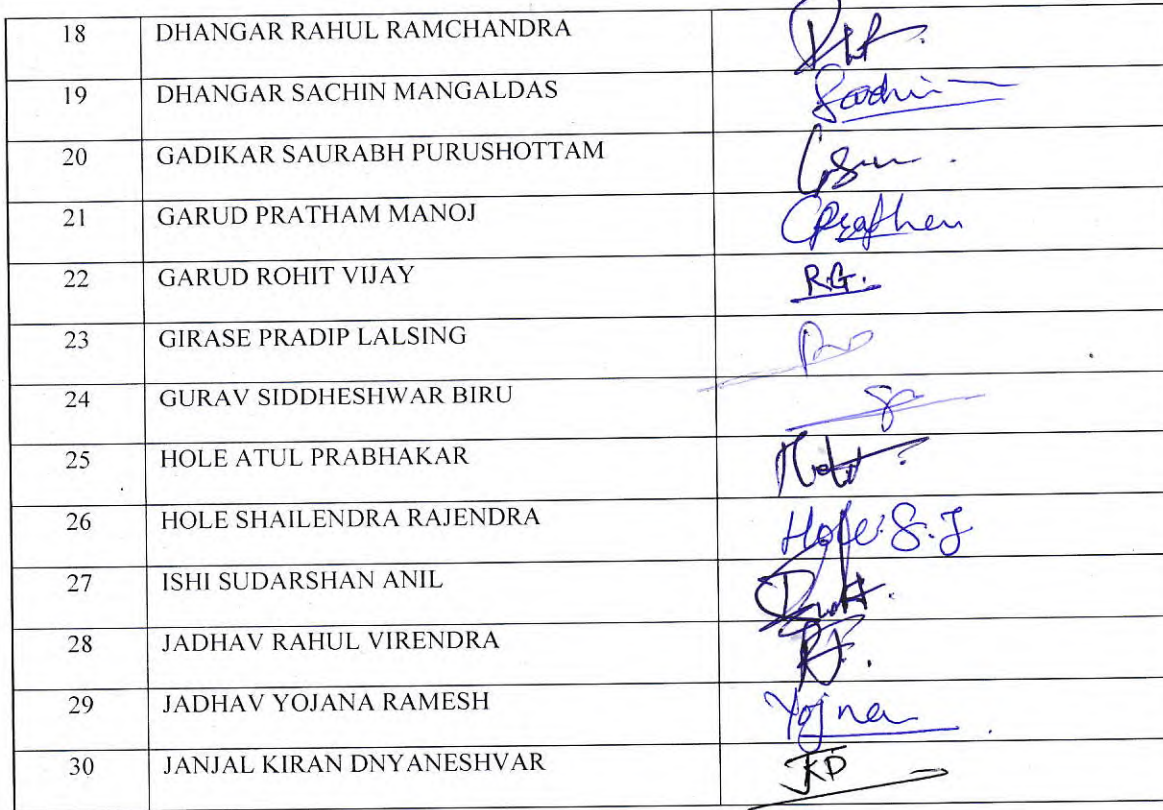 18 DHANGAR RAHUL RAMCHANDRA
19 DHANGAR SACHIN MANGALDAS Sachin
20 GADIKAR SAURABH PURUSHOTTAM
21 GARUD PRATHAM MANOJ
22 GARUD ROHIT VIJAY R.G.
23 GIRASE PRADIP LALSING
24 GURAV SIDDHESHWAR BIRU
25 HOLE ATUL PRABHAKAR
26 HOLE SHAILENDRA RAJENDRA Hole
27 ISHI SUDARSHAN ANIL
28 JADHAV RAHUL VIRENDRA RJ.
29 JADHAV YOJANA RAMESH Yojna
30 JANJAL KIRAN DNYANESHVAR JKD